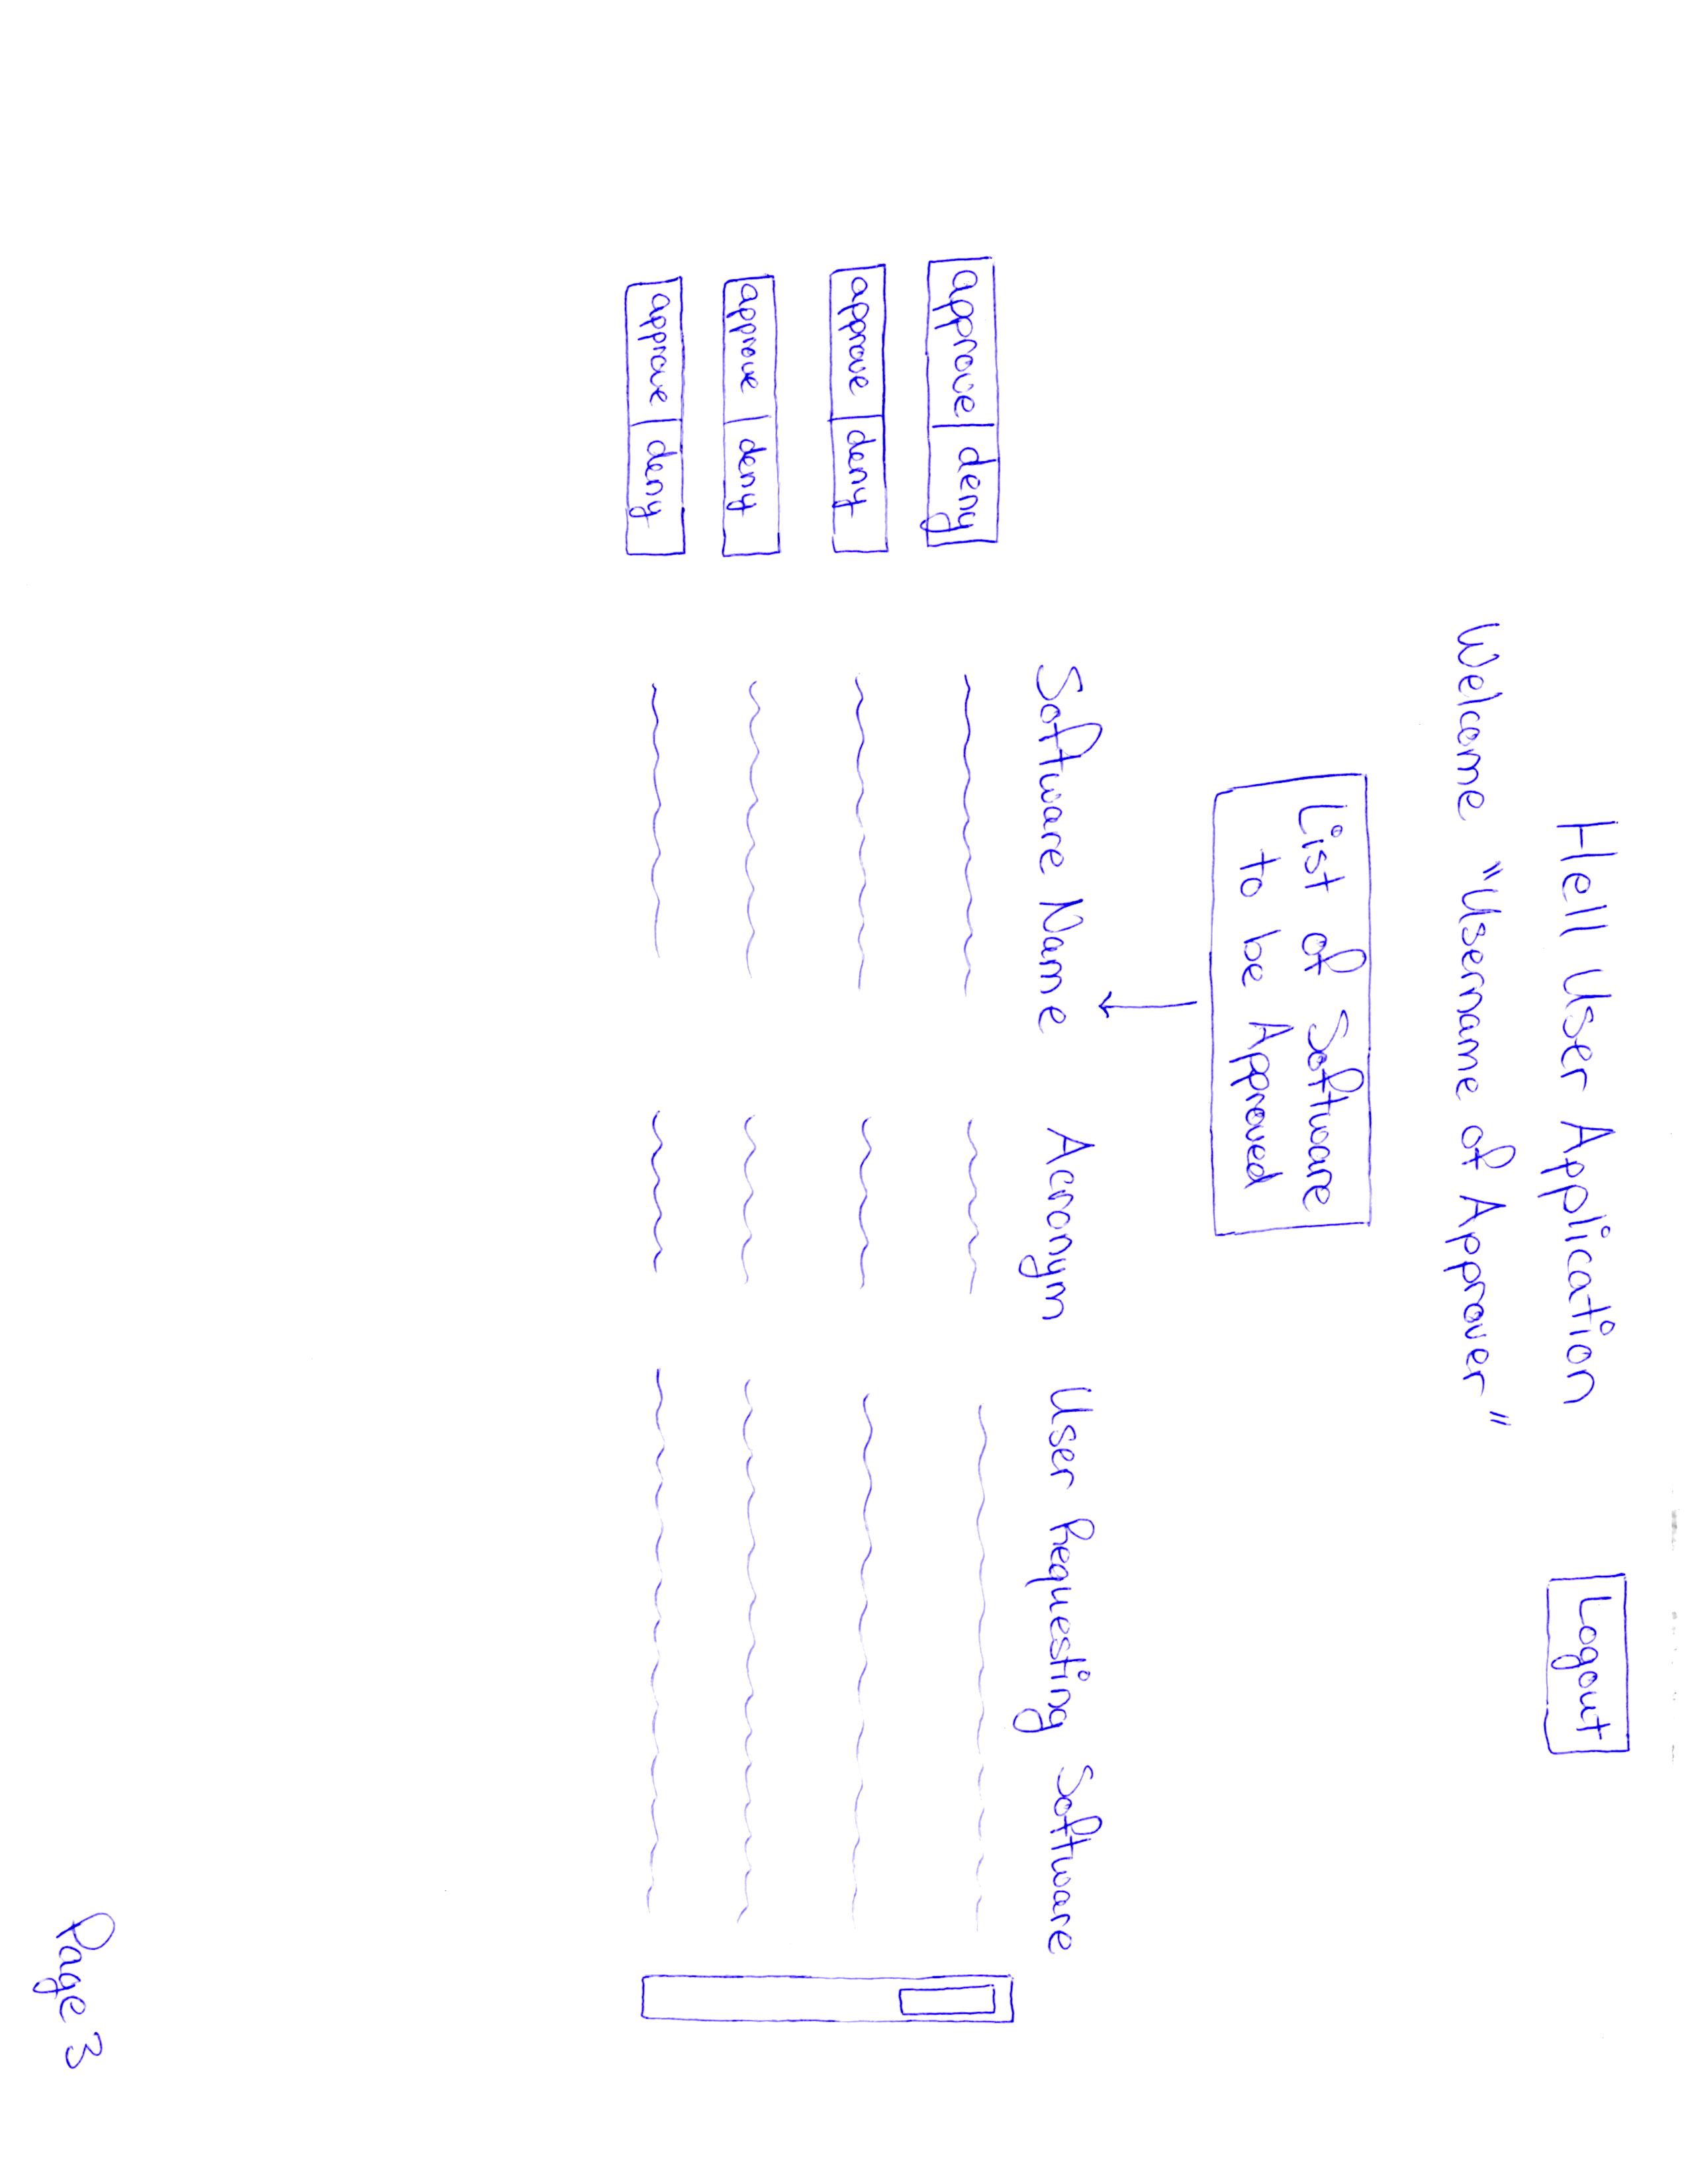 Hell User Application
Logout
Welcome "Username of Approver"
List of Software
to be Approved
Software Name Acronym User Requesting Software
approve deny
approve deny
approve deny
approve deny
Page 3